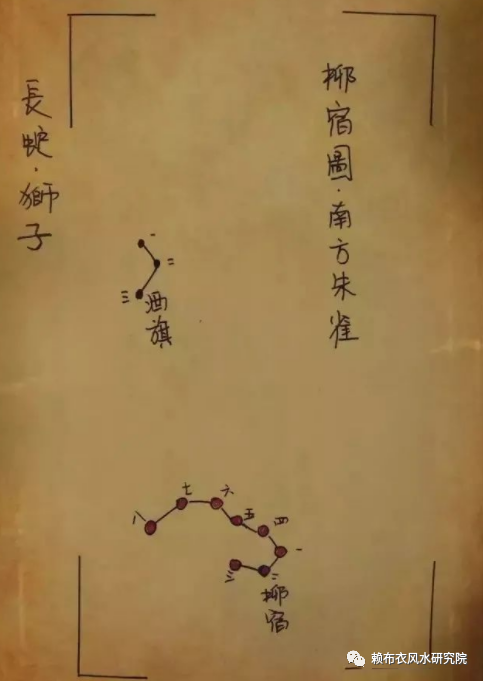 柳宿圖·南方朱雀
長蛇·獅子
一
二
三
酒旗
七
六
八
五
四
一
三
二
柳宿
赖布衣风水研究院